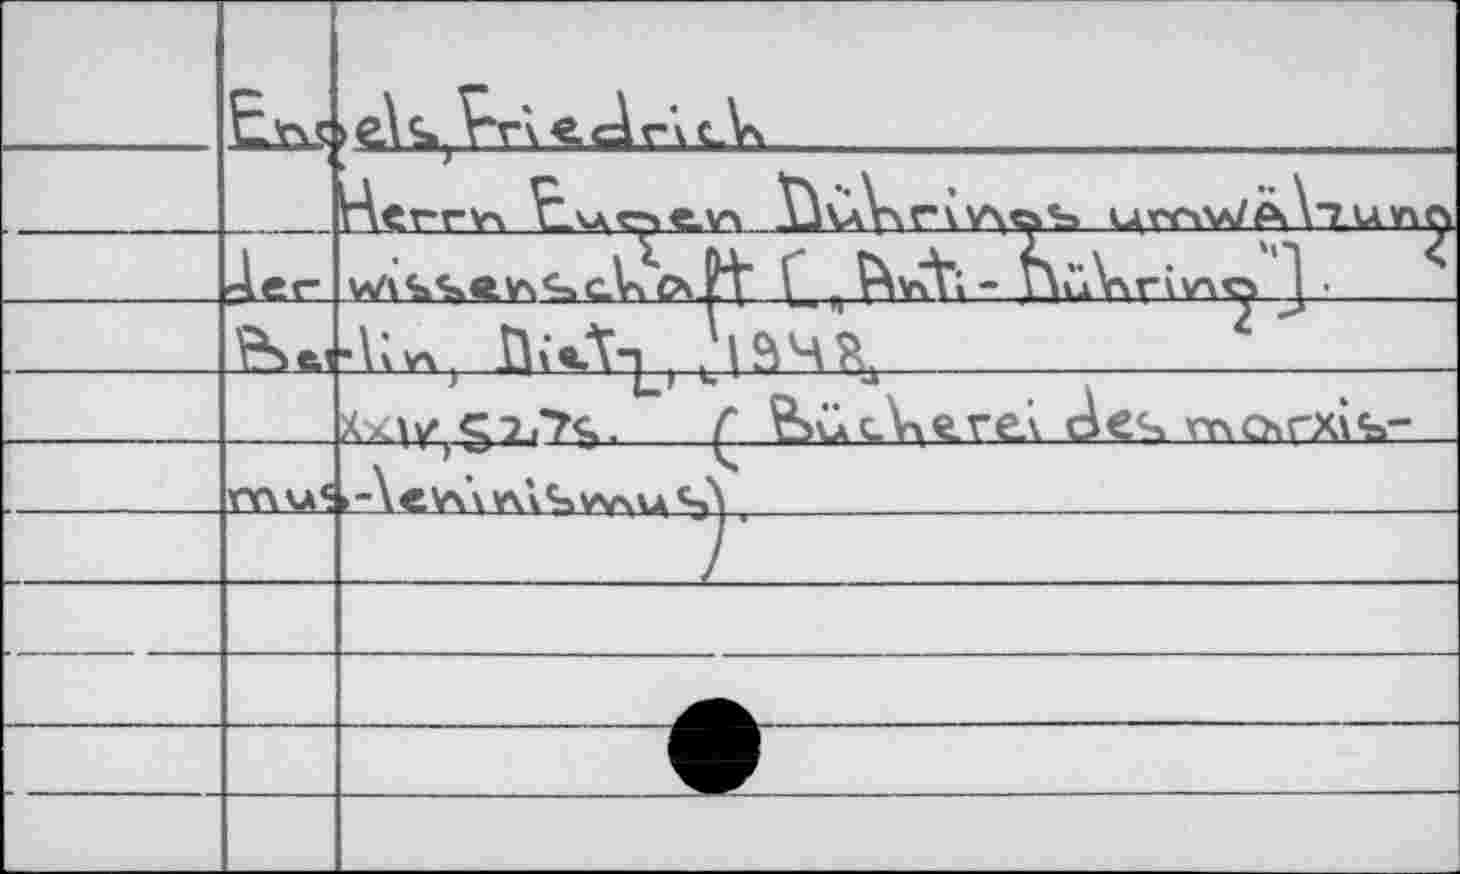 Engels, Friedrich
Herrn Eugen Dührings umwälzung
der wissenschaft [„Anti-Dühring"].
Berlin, Dietz, 1948,
xxiv, 527s. (Bücherei des marxis-
mus-leninismus).